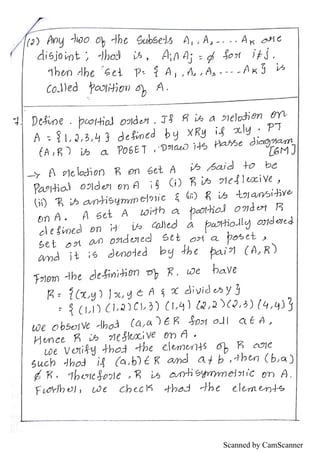 (2) Any two of the subsets A1, A2, .... Ak are
disjoint; that is, Ai∩Aj = ϕ for i≠j.
Then the set P = { A1, A2, A3 ---- Ak } is
called partition of A.
7. Define - partial order. If R is a relation on
A = {1,2,3,4} defined by xRy if x|y. PT
(A,R) is a POSET, Draw its Hasse diagram
[6M]
→ A relation R on set A is said to be
Partial order on A if (i) R is reflexive,
(ii) R is antisymmetric & (iii) R is transitive
on A. A set A with a partial order R
defined on it is called a partially ordered
set or an ordered set or a poset,
and it is denoted by the pair (A,R)
From the definition of R, we have
R = {(x,y) | x,y ∈ A & x divides y}
= {(1,1) (1,2) (1,3) (1,4) (2,2) (2,3) (4,4)}
we observe that (a,a) ∈ R for all a ∈ A,
Hence R is reflexive on A.
we verify that the elements of R are
such that if (a,b) ∈ R and a ≠ b, then (b,a)
∉ R. Therefore, R is antisymmetric on A.
Further, we check that the elements
Scanned by CamScanner